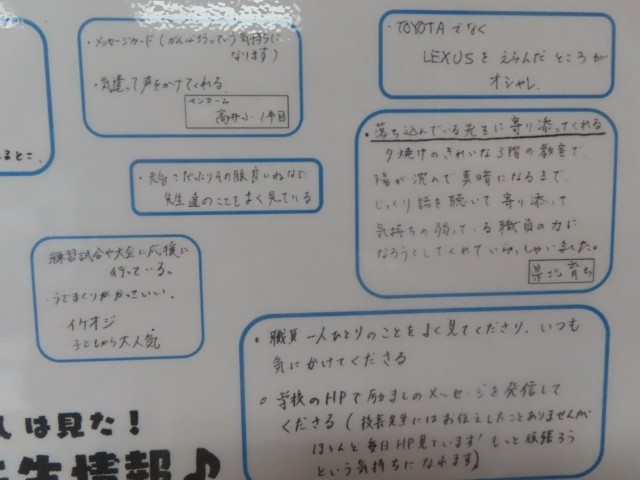 ・メッセージカード(がんばろうっていう気持ちに
なります)
・気遣って声をかけてくれる。
ペンネーム
高井小 1年目
・TOYOTAでなく
LEXUSをえらんだところが
オシャレ。
・落ち込んでいる先生に寄り添ってくれる
夕焼けのきれいな3階の教室で、
陽が沈んで真暗になるまで、
じっくり話を聴いて寄り添って
気持ちの弱っている職員の力に
なろうとしてくれていらっしゃいました。
県北育ち
だったりその服良いねなど
先生達のことをよく見ている
るとこ。
練習試合や大会に応援に
行っている。
・うでまくりがかっこいい。
イケオジ
・子どもから大人気
・職員一人ひとりのことをよく見てくださり、いつも
気にかけてくださる
○学校のHPで励ましのメッセージを発信して
くださる(校長先生にはお伝えしたことありませんが
ほとんど毎日HP見ています!もっと頑張ろう
という気持ちになれます)
は見た!
情報♪